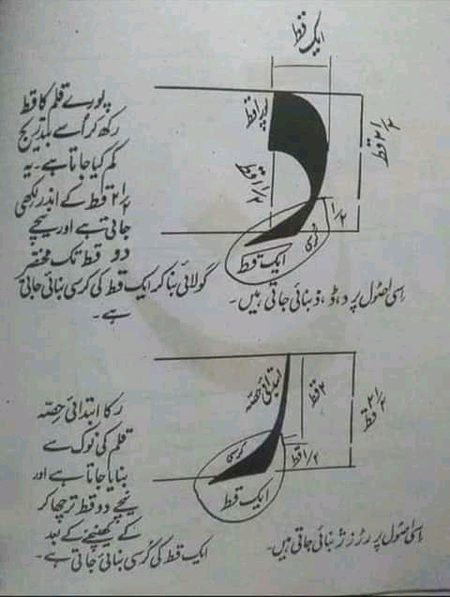 ایک قط
پورے قلم کا قط
رکھ کر اُسے بتدریج
کم کیا جاتا ہے۔ یہ
۲ ۱/۲ قط کے اندر لکھی
جاتی ہے اور نیچے
دو قط تک مختصر
گولائی بنا کر ایک قط کی کرسی بنائی جاتی
ہے۔
قط
۱ ۱/۲ قط
۲ ۱/۲ قط
۱/۲
کرسی
ایک قط
اسی اصول پر د، ڈ، ذ بنائی جاتی ہیں۔
ر کا ابتدائی حصّہ
قلم کی نوک سے
بنایا جاتا ہے اور
نیچے دو قط ترچھا کر
کے کھینچنے کے بعد
ایک قط کی کُرسی بنائی جاتی ہے۔
ابتدائی حصّہ
۲ قط
۲ ۱/۲ قط
۱/۲ قط
کرسی
ایک قط
اسی اصول پر ر ڑ ز ژ بنائی جاتی ہیں۔